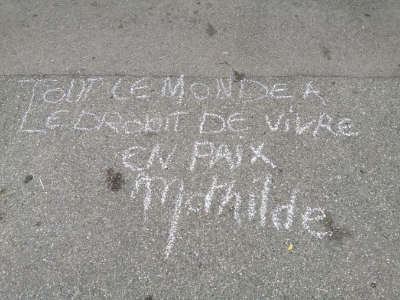 TOUT LE MONDE A
LE DROIT DE VIVRE
EN PAIX
Mathilde